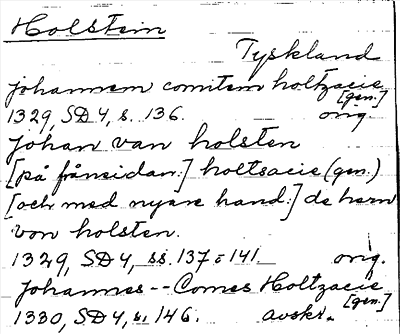 Holstein
Tyskland
johannem comitem holtzacie
[gen.]
1329, SD 4, s. 136. orig.
Johan van holsten
[på frånsidan:] holtsacie (gen.)
[och med nyare hand:] de hern
von holsten.
1329, SD 4, ss. 137-141. orig.
Johannes -- Comes Holtzacie
[gen.]
1330, SD 4, s. 146. avskr.